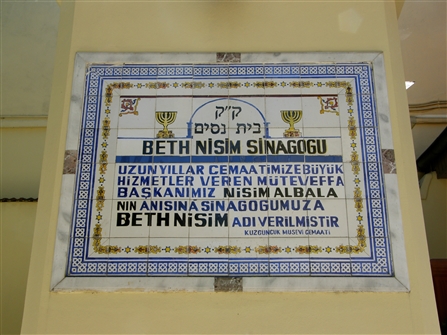 ק״ק
בית נסים
BETH NİSİM SİNAGOGU
UZUN YILLAR CEMAATİMİZE BÜYÜK
HİZMETLER VEREN MÜTEVEFFA
BAŞKANIMIZ NİSİM ALBALA
NIN ANISINA SİNAGOGUMUZA
BETH NİSİM ADI VERİLMİŞTİR
KUZGUNCUK MUSEVİ CEMAATI